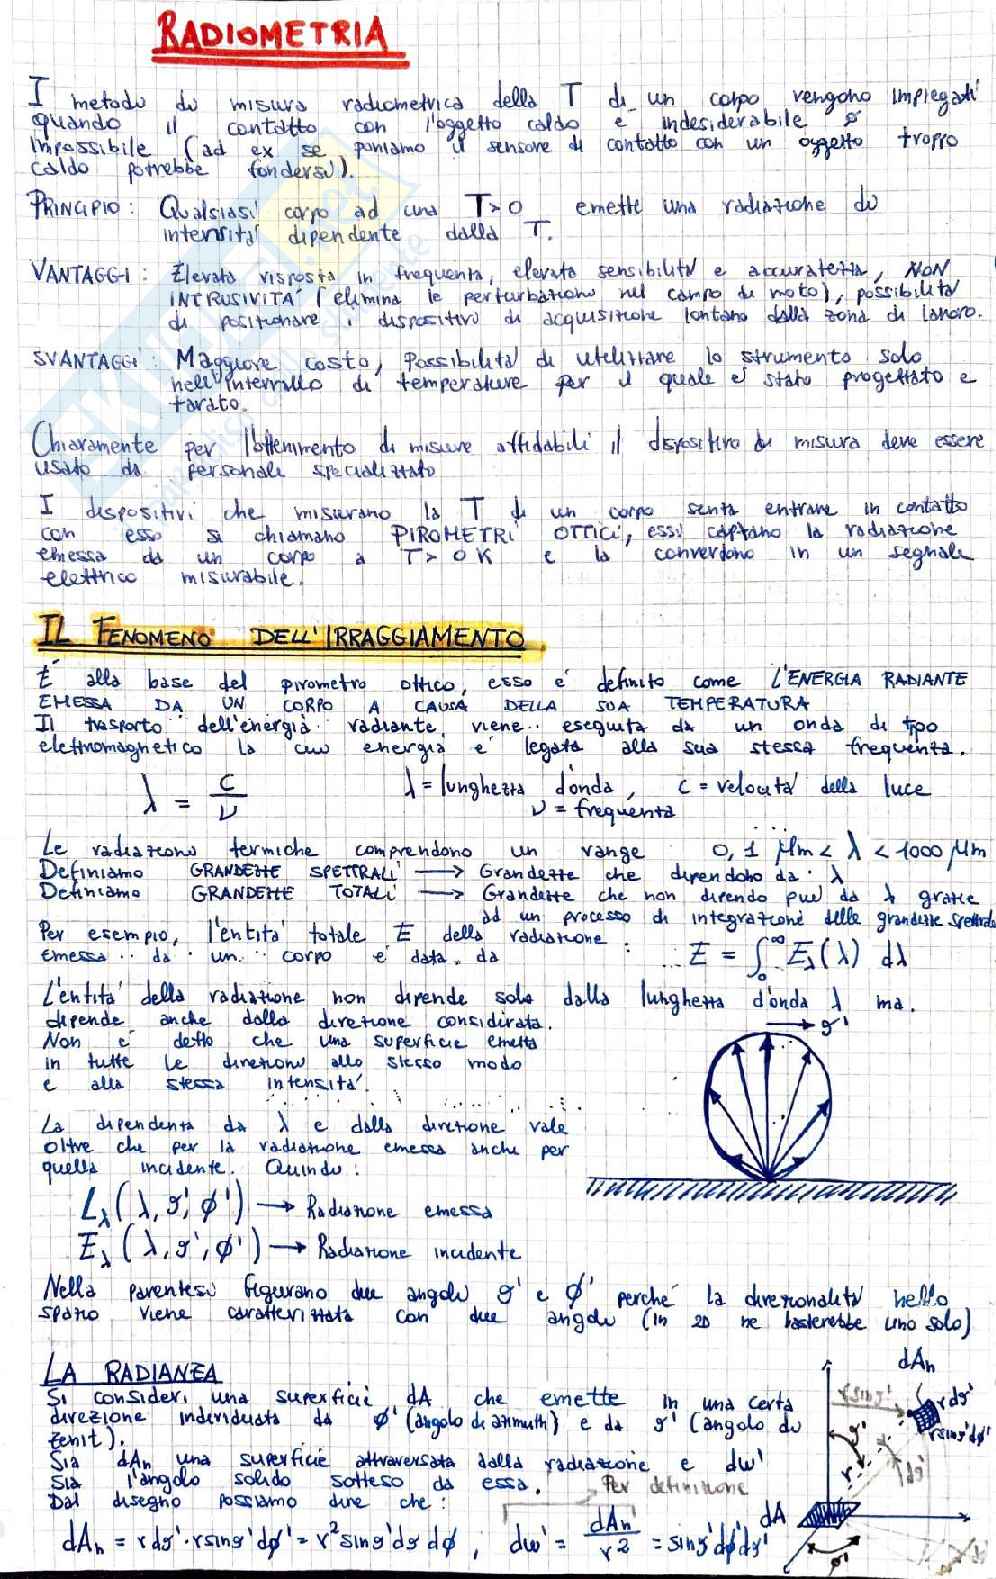 RADIOMETRIA
I metodi di misura radiometrica della T di un corpo vengono impiegati
quando il contatto con l'oggetto caldo è indesiderabile o
impossibile (ad ex se poniamo il sensore di contatto con un oggetto troppo
caldo potrebbe fondersi).
PRINCIPIO: Qualsiasi corpo ad una T>0 emette una radiazione di
intensità dipendente dalla T.
VANTAGGI: Elevata risposta in frequenza, elevata sensibilità e accuratezza, NON
INTRUSIVITÀ (elimina le perturbazioni nel campo di moto), possibilità
di posizionare i dispositivi di acquisizione lontano dalla zona di lavoro.
SVANTAGGI: Maggiore costo, possibilità di utilizzare lo strumento solo
nell'intervallo di temperature per il quale è stato progettato e
tarato.
Chiaramente per l'ottenimento di misure affidabili il dispositivo di misura deve essere
usato da personale specializzato
I dispositivi che misurano la T di un corpo senza entrare in contatto
con esso si chiamano PIROMETRI OTTICI, essi captano la radiazione
emessa da un corpo a T>0K e la convertono in un segnale
elettrico misurabile.
IL FENOMENO DELL'IRRAGGIAMENTO
È alla base del pirometro ottico, esso è definito come L'ENERGIA RADIANTE
EMESSA DA UN CORPO A CAUSA DELLA SUA TEMPERATURA
Il trasporto dell'energia radiante viene eseguita da un onda di tipo
elettromagnetico la cui energia è legata alla sua stessa frequenza.
λ = c/ν λ = lunghezza d'onda, c = velocità della luce
ν = frequenza
Le radiazioni termiche comprendono un range 0,1 μm < λ < 1000 μm
Definiamo GRANDEZZE SPETTRALI → Grandezze che dipendono da λ
Definiamo GRANDEZZE TOTALI → Grandezze che non dipendo più da λ grazie
ad un processo di integrazione delle grandezze spettrali
Per esempio, l'entità totale E della radiazione
emessa da un corpo è data da : E = ∫₀^∞ E_λ(λ) dλ
L'entità della radiazione non dipende solo dalla lunghezza d'onda λ ma
dipende anche dalla direzione considirata.
Non è detto che una superficie emetta
in tutte le direzioni allo stesso modo
e alla stessa intensità.
ϑ'
La dipendenza da λ e dalla direzione vale
oltre che per la radiazione emessa anche per
quella incidente. Quindi:
L_λ(λ, ϑ', φ') → Radiazione emessa
E_λ(λ, ϑ', φ') → Radiazione incidente
Nella parentesi figurano due angoli ϑ' e φ' perché la direzionalità nello
spazio viene caratterizzata con due angoli (in 2D ne basterebbe uno solo)
LA RADIANZA
Si consideri una superficie dA che emette in una certa
direzione individuata da φ' (angolo di azimuth) e da ϑ' (angolo di
zenit).
Sia dAn una superficie attraversata dalla radiazione e dω'
sia l'angolo solido sotteso da essa.
Per definizione
Dal disegno possiamo dire che:
dAn = r dϑ' · r sinϑ' dφ' = r² sinϑ' dϑ dφ ; dω' = dAn/r² = sinϑ' dφ' dϑ'
dAn
r sinϑ'
r dϑ'
r sinϑ' dφ'
ϑ'
r
dϑ'
dA
φ'